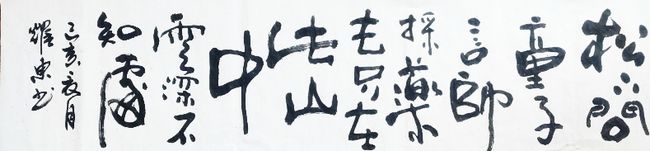 松下問
童子
言師
採藥
去只在
此山
中
雲深不
知處
己亥夏月
耀東书